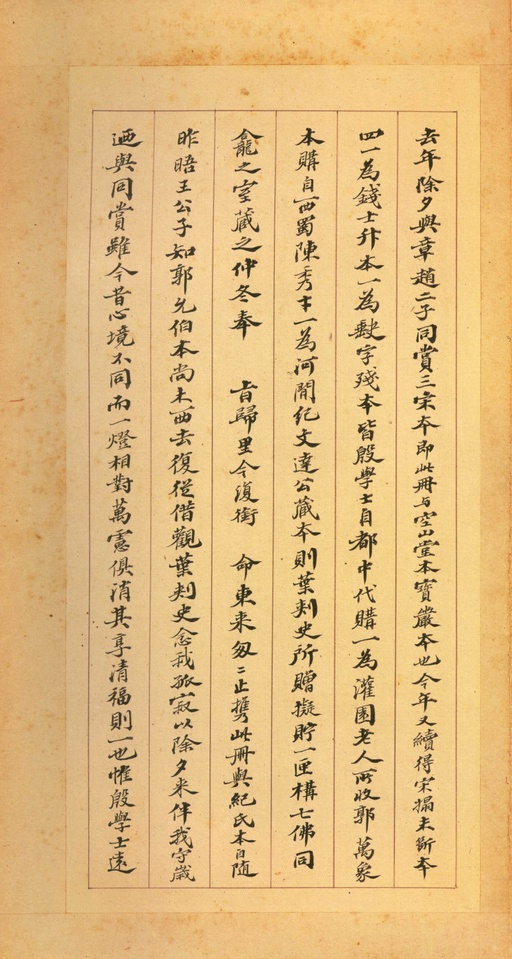 去年除夕與章趙二子同賞三宋本即此冊与空山堂本寶嚴本也今年又續得宋搨未斷本
四一為錢士升本一為軙字殘本皆殷學士自都中代購一為灌園老人所收郭萬象
本購自西蜀陳秀才一為河間紀文達公藏本則葉刾史所贈擬貯一匣構七佛同
龕之室藏之仲冬奉 旨歸里今復銜 命東來匆二止攜此冊與紀氏本自随
昨晤王公子知郭允伯本尚未西去復從借觀葉刾史念我孤寂以除夕來伴我守歲
迺與同賞雖今昔心境不同而一燈相對萬慮俱消其享清福則一也惟殷學士遠